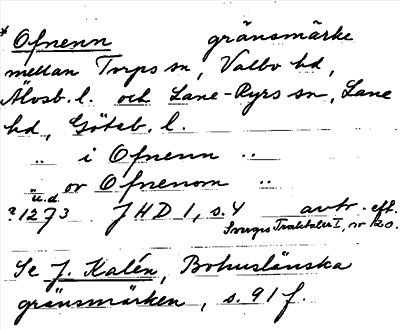 * Ofnenn gränsmärke
mellan Torps sn, Valbo hd,
Älvsb. l. och Lane-Ryrs sn, Lane
hd, Göteb. l.
.. i Ofnenn ..
.. or Ofnenom ..
u.d.
?1273 JHD 1, s. 4 avtr. eft.
Sverges Traktater I, nr 120.
Se J. Kalén, Bohuslänska
gränsmärken, s. 91 f.